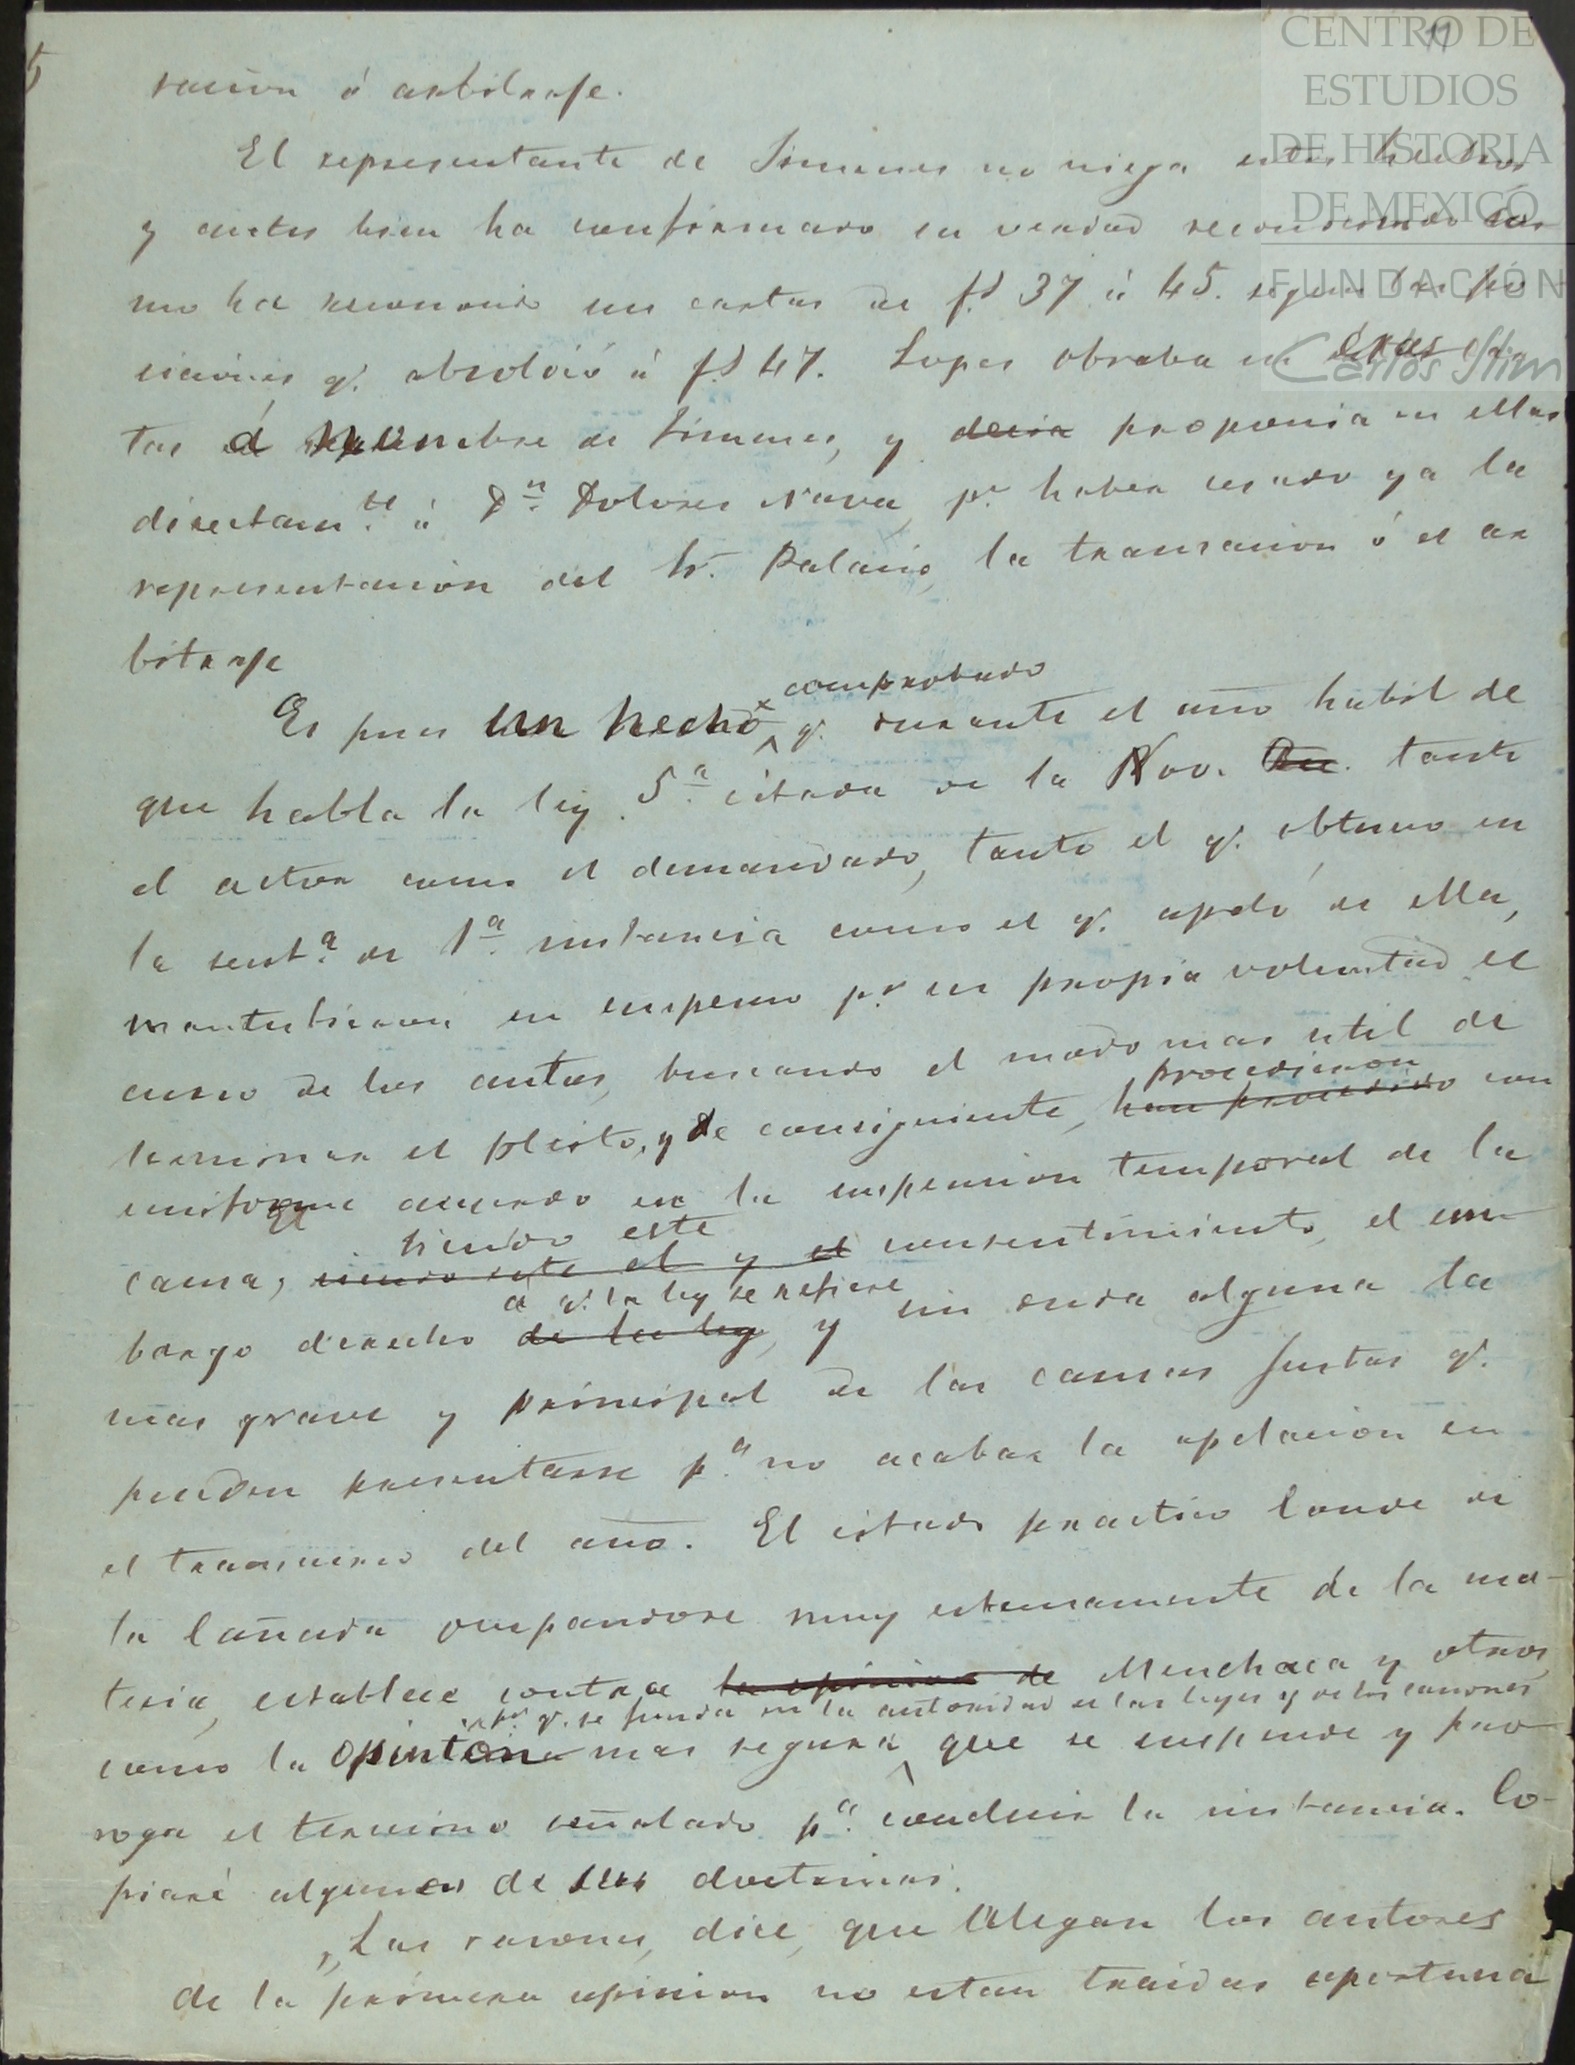 saccion ó arbitraje.
El representante de Jimenes no niega estos hechos
y antes bien ha confirmado su verdad reconociendo co-
mo ha reconocido sus cartas de f.s 37 á 45. segun las po-
siciones q.e absolvió á f.s 47. Lopes obraba en estas car-
tas á nombre de Jimenes, y decia proponia en ellas
directam.te á D.n Dolores Nava, p.r haber cesado ya la
representacion del Sr. Palacio, la transacion ó el ar
bitraje
comprobado
Es pues un hecho q.e durante el año habil de
que habla la ley 5.a citada de la Nov. Rec. tanto
el actor como el demandado, tanto el q.e obtuvo en
la sent.a de 1.a instancia como el q.e apeló de ella,
mantubieron en suspenso p.r su propia voluntad el
curso de los autos, buscando el modo mas util de
procedieron
terminar el pleito, y de consiguiente, han procedido con
uniforme acuerdo en la suspension temporal de la
siendo este
causa, siendo este el y el consentimiento, el em-
a q.e la ley se refiere
bargo derecho de la ley, y sin duda alguna la
mas grave y principal de las causas justas q.e
pueden presentarse p.a no acabar la apelacion en
el transcurso del año. El citado practico Conde de
la Cañada ocupandose muy estensamente de la ma-
teria, establece contra la opinion de Menchaca y otros,
p.r q.e se funda en la autoridad de las leyes y de los canones
como la opinion mas segura que se suspende y pro-
roga el termino señalado p.a concluir la instancia. Co-
piaré algunas de sus doctrinas.
"Las rasones, dice, que alegan los autores
de la primera opinion no estan traidas oportuna
CENTRO DE
ESTUDIOS
DE HISTORIA
DE MEXICO
FUNDACIÓN
Carlos Slim